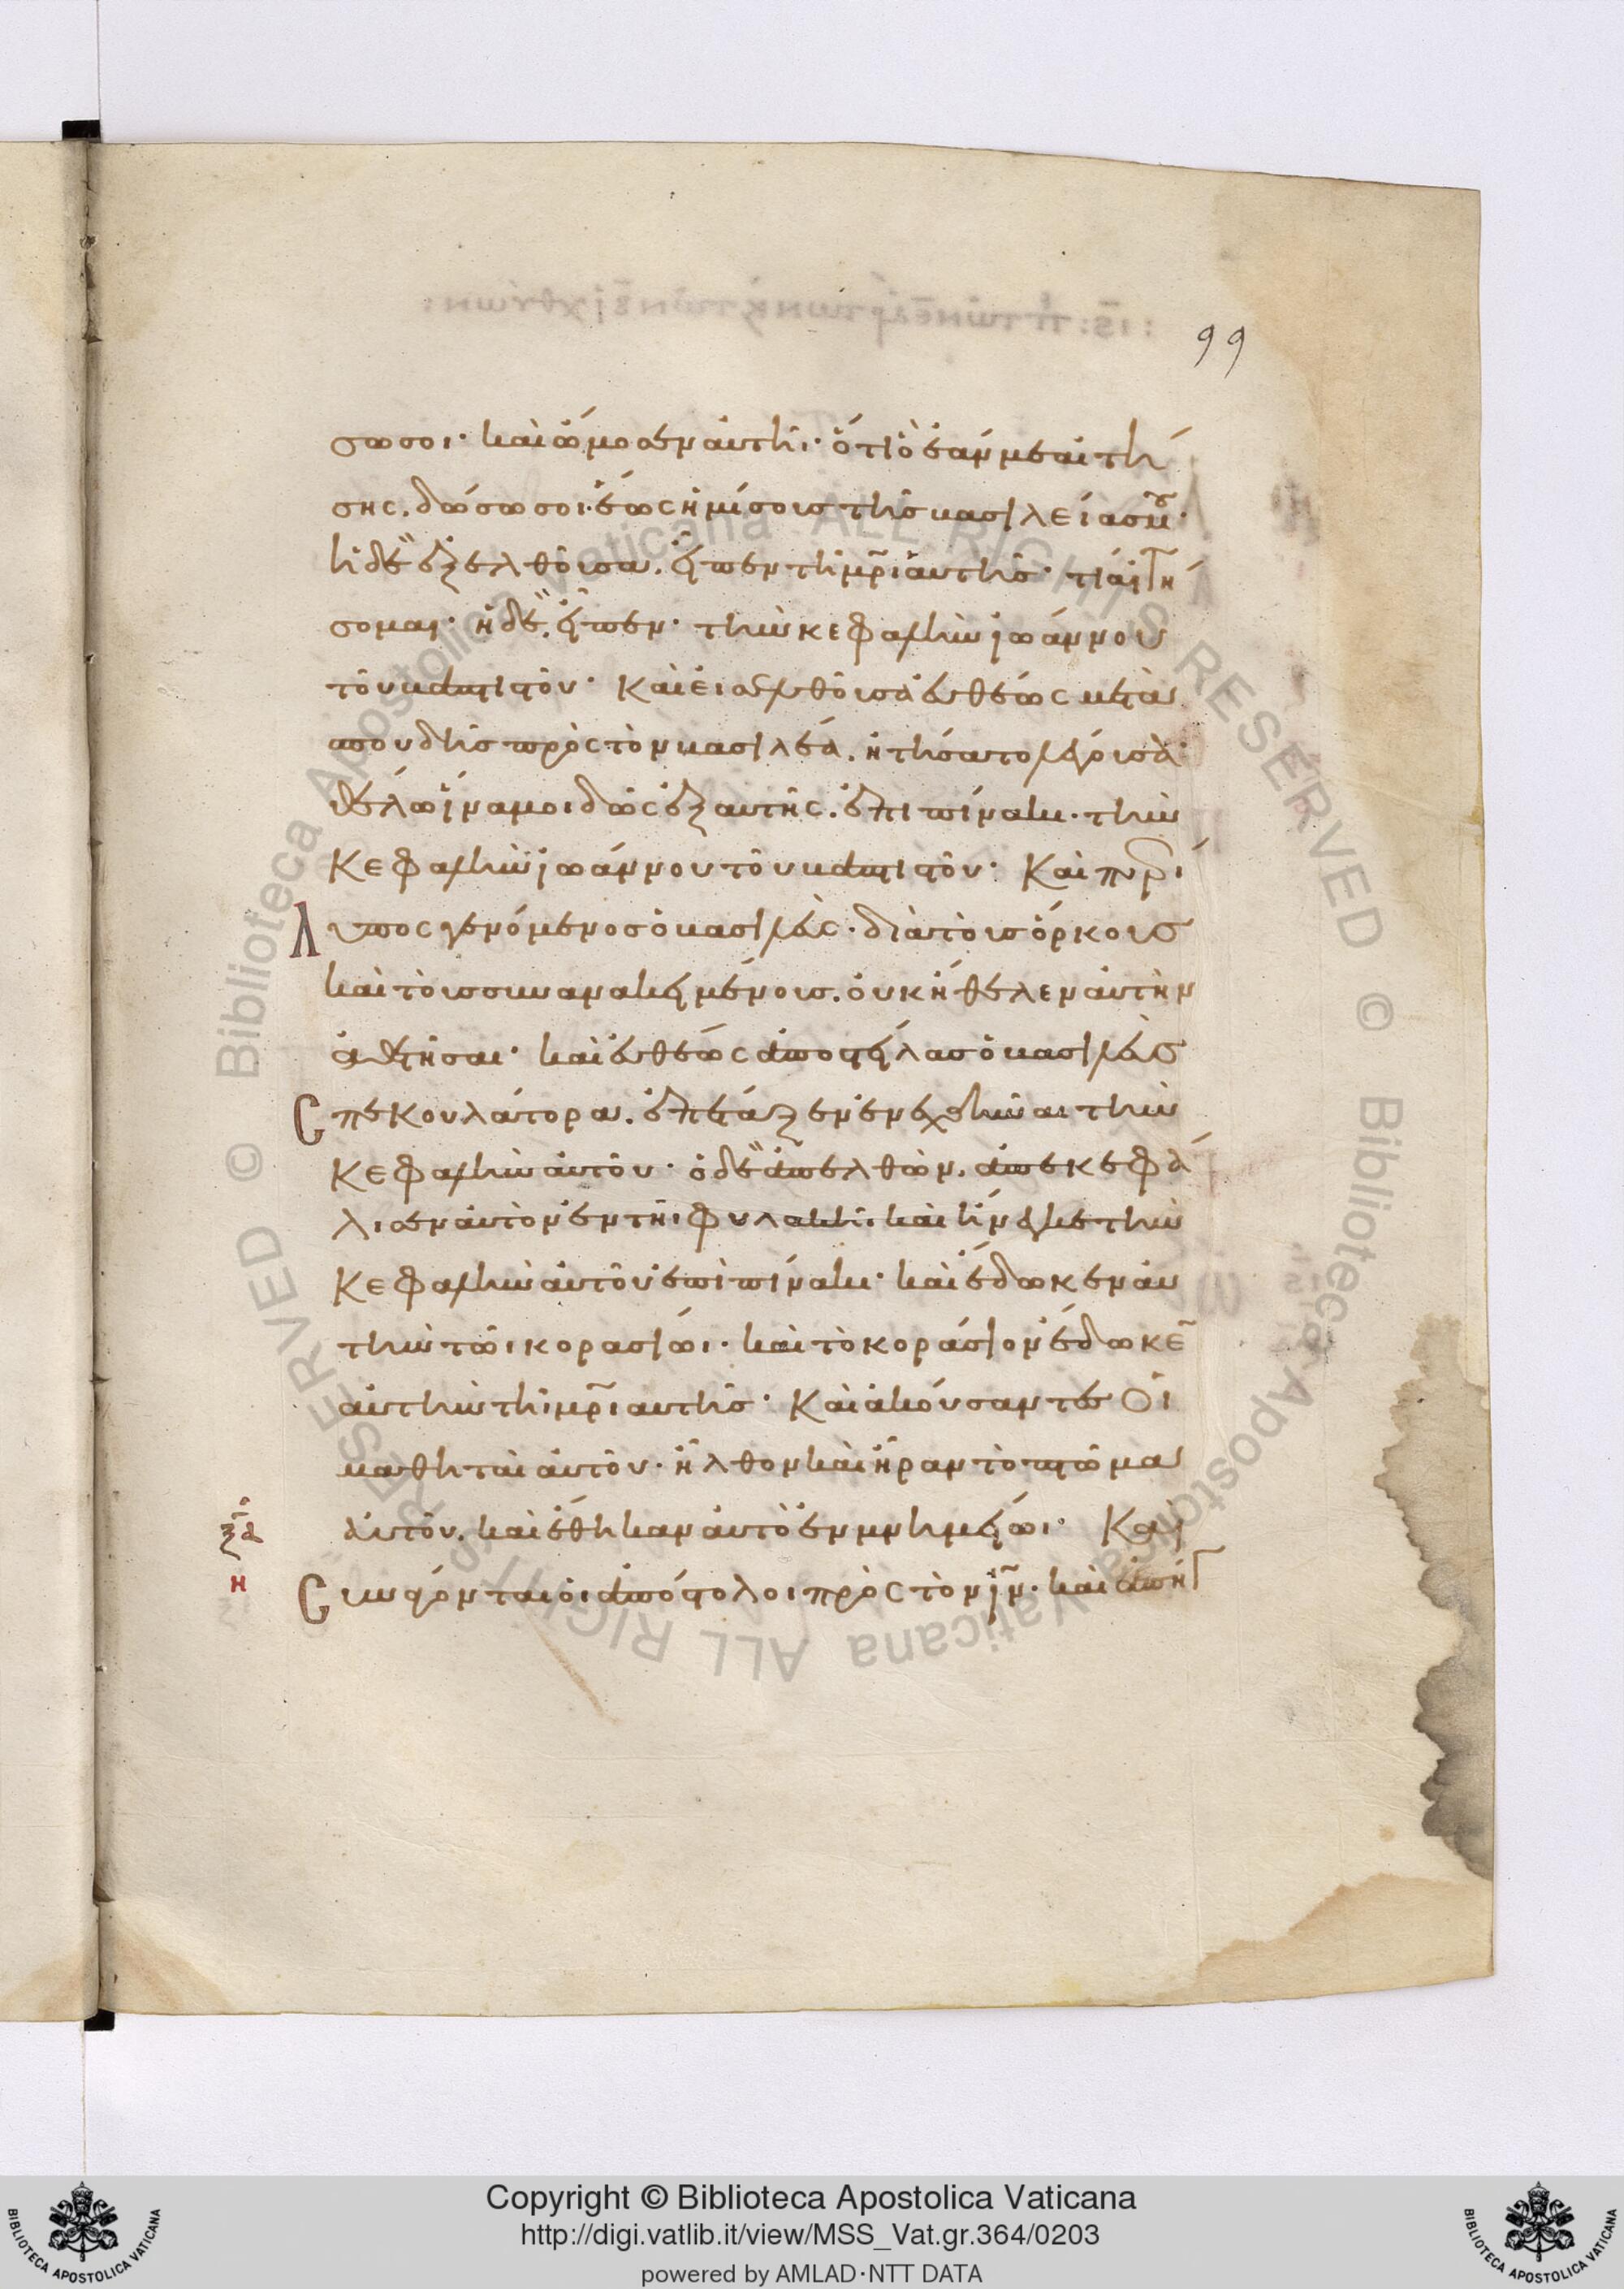 99
σω σοι· καὶ ὤμοσεν αὐτῆι· ὅτι ὃ ἐάν με αἰτή
σης. δώσω σοι· ἕως ἡμίσους τῆς βασιλείας μου·
ἡ δὲ ἐξελθοῦσα. εἶπεν τῆ μρ̅ι αὐτῆς· τί αἰτή
σομαι· ἡ δὲ. εἶπεν· τὴν κεφαλὴν ἰωάννου
τοῦ βαπτιστοῦ· Καὶ εἰσελθοῦσα εὐθέως μετὰ
σπουδῆς πρὸς τὸν βασιλέα. ἠτήσατο λέγουσα·
θέλω ἵνα μοι δῶς ἐξ αυτῆς. ἐπι πίνακι· τὴν
Κεφαλὴν ἰωάννου τοῦ βαπτιστοῦ· Καὶ περί
Λυπος γενόμενος ὁ βασιλεὺς· διὰ τοὺς ὅρκους
καὶ τοὺς συνανακειμένους. οὐκ ἤθελεν αὐτὴν
ἀθετῆσαι· καὶ εὐθέως ἀποστείλας ὁ βασιλεὺς
Σπεκουλάτορα. ἐπέταξεν ἐνεχθῆναι τὴν
Κεφαλὴν αὐτοῦ· ὁ δὲ ἀπελθὼν. ἀπεκεφά
λισεν αὐτὸν ἐν τῆι φυλακῆι. καὶ ἤνεγκε τὴν
Κεφαλὴν αὐτοῦ ἐπὶ πίνακι· καὶ ἔδωκεν αὐ
τὴν τῶι κορασίωι· καὶ τὸ κοράσιον ἔδωκε̅
αὐτὴν τῆι μρ̅ι αυτῆς· Καὶ ἀκούσαντες Οἱ
μαθηταὶ αὐτοῦ· ἦλθον καὶ ἦραν τὸ πτῶμα
αὐτοῦ. καὶ ἔθηκαν αὐτὸ ἐν μνημείωι· Καὶ
ξα
η
Συνάγονται οἱ ἀπόστολοι πρὸς τὸν ιν̅· καὶ ἀπήγ
Copyright © Biblioteca Apostolica Vaticana
http://digi.vatlib.it/view/MSS_Vat.gr.364/0203
powered by AMLAD·NTT DATA
BIBLIOTECA APOSTOLICA VATICANA
BIBLIOTECA APOSTOLICA VATICANA
© Biblioteca Apostolica Vaticana ALL RIGHTS RESERVED © Biblioteca Apostolica Vaticana ALL RIGHTS RESERVED